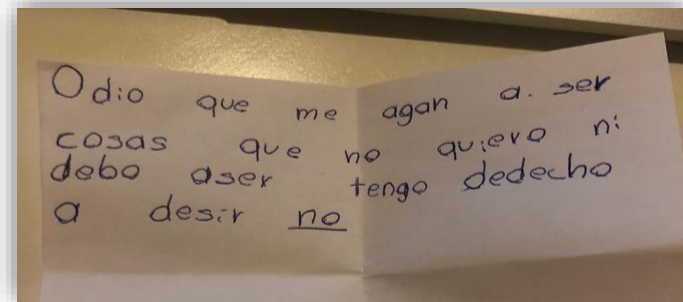 Odio que me agan a. ser
cosas que no quiero ni
debo aser tengo dedecho
a desir no